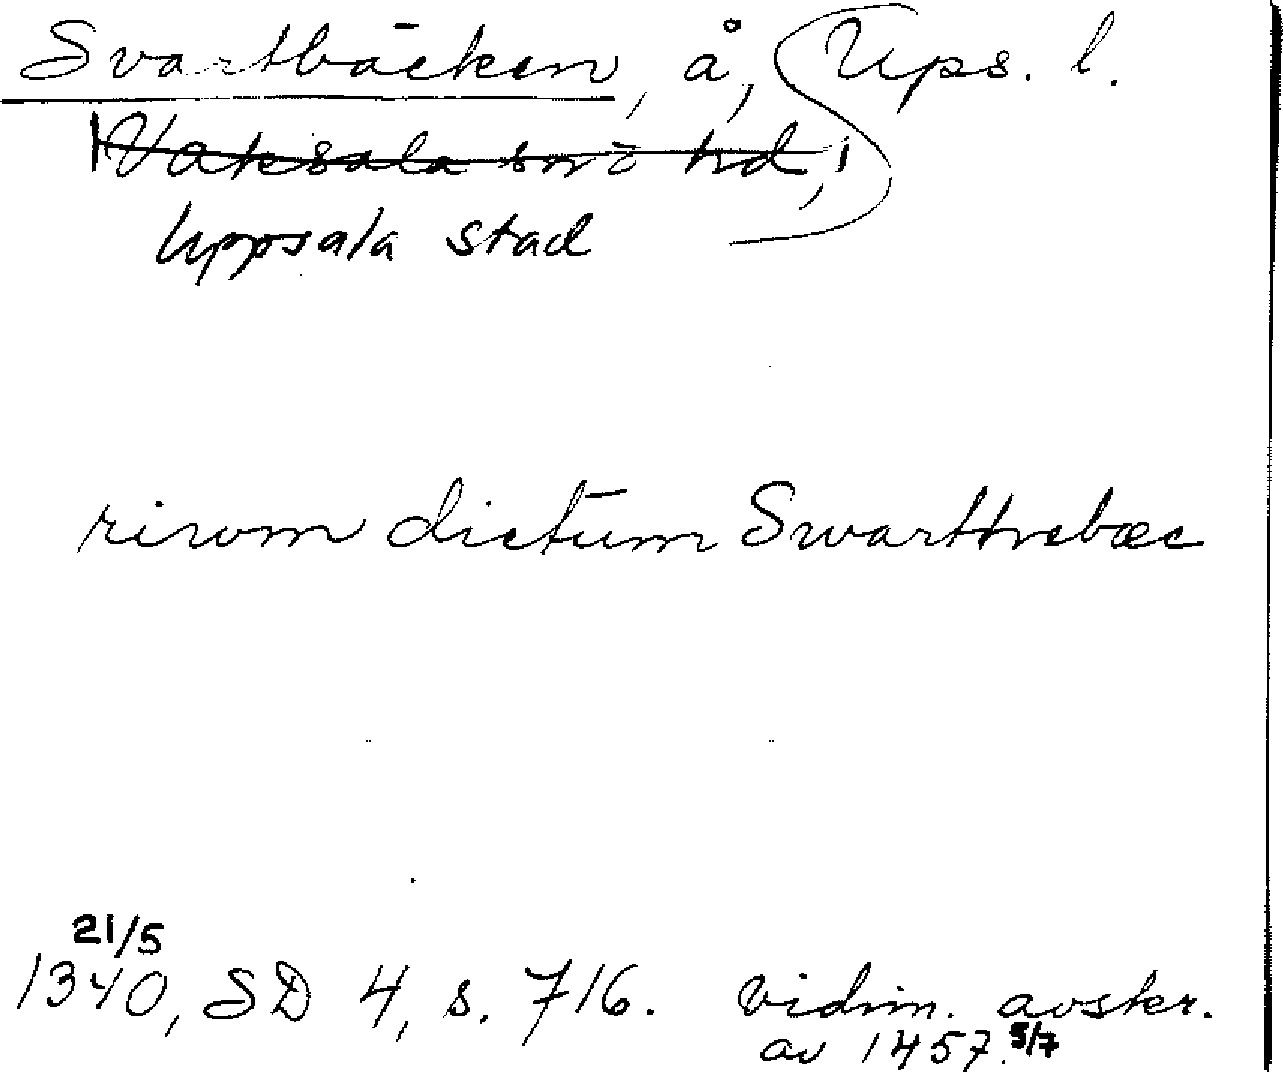 Svartbäcken, å, Ups. l.
Vaksala sn o hd,
Uppsala stad
rivom dictum Swarthebæc
21/5
1340, SD 4, s. 716. vidim. avskr.
av 1457. 5/7